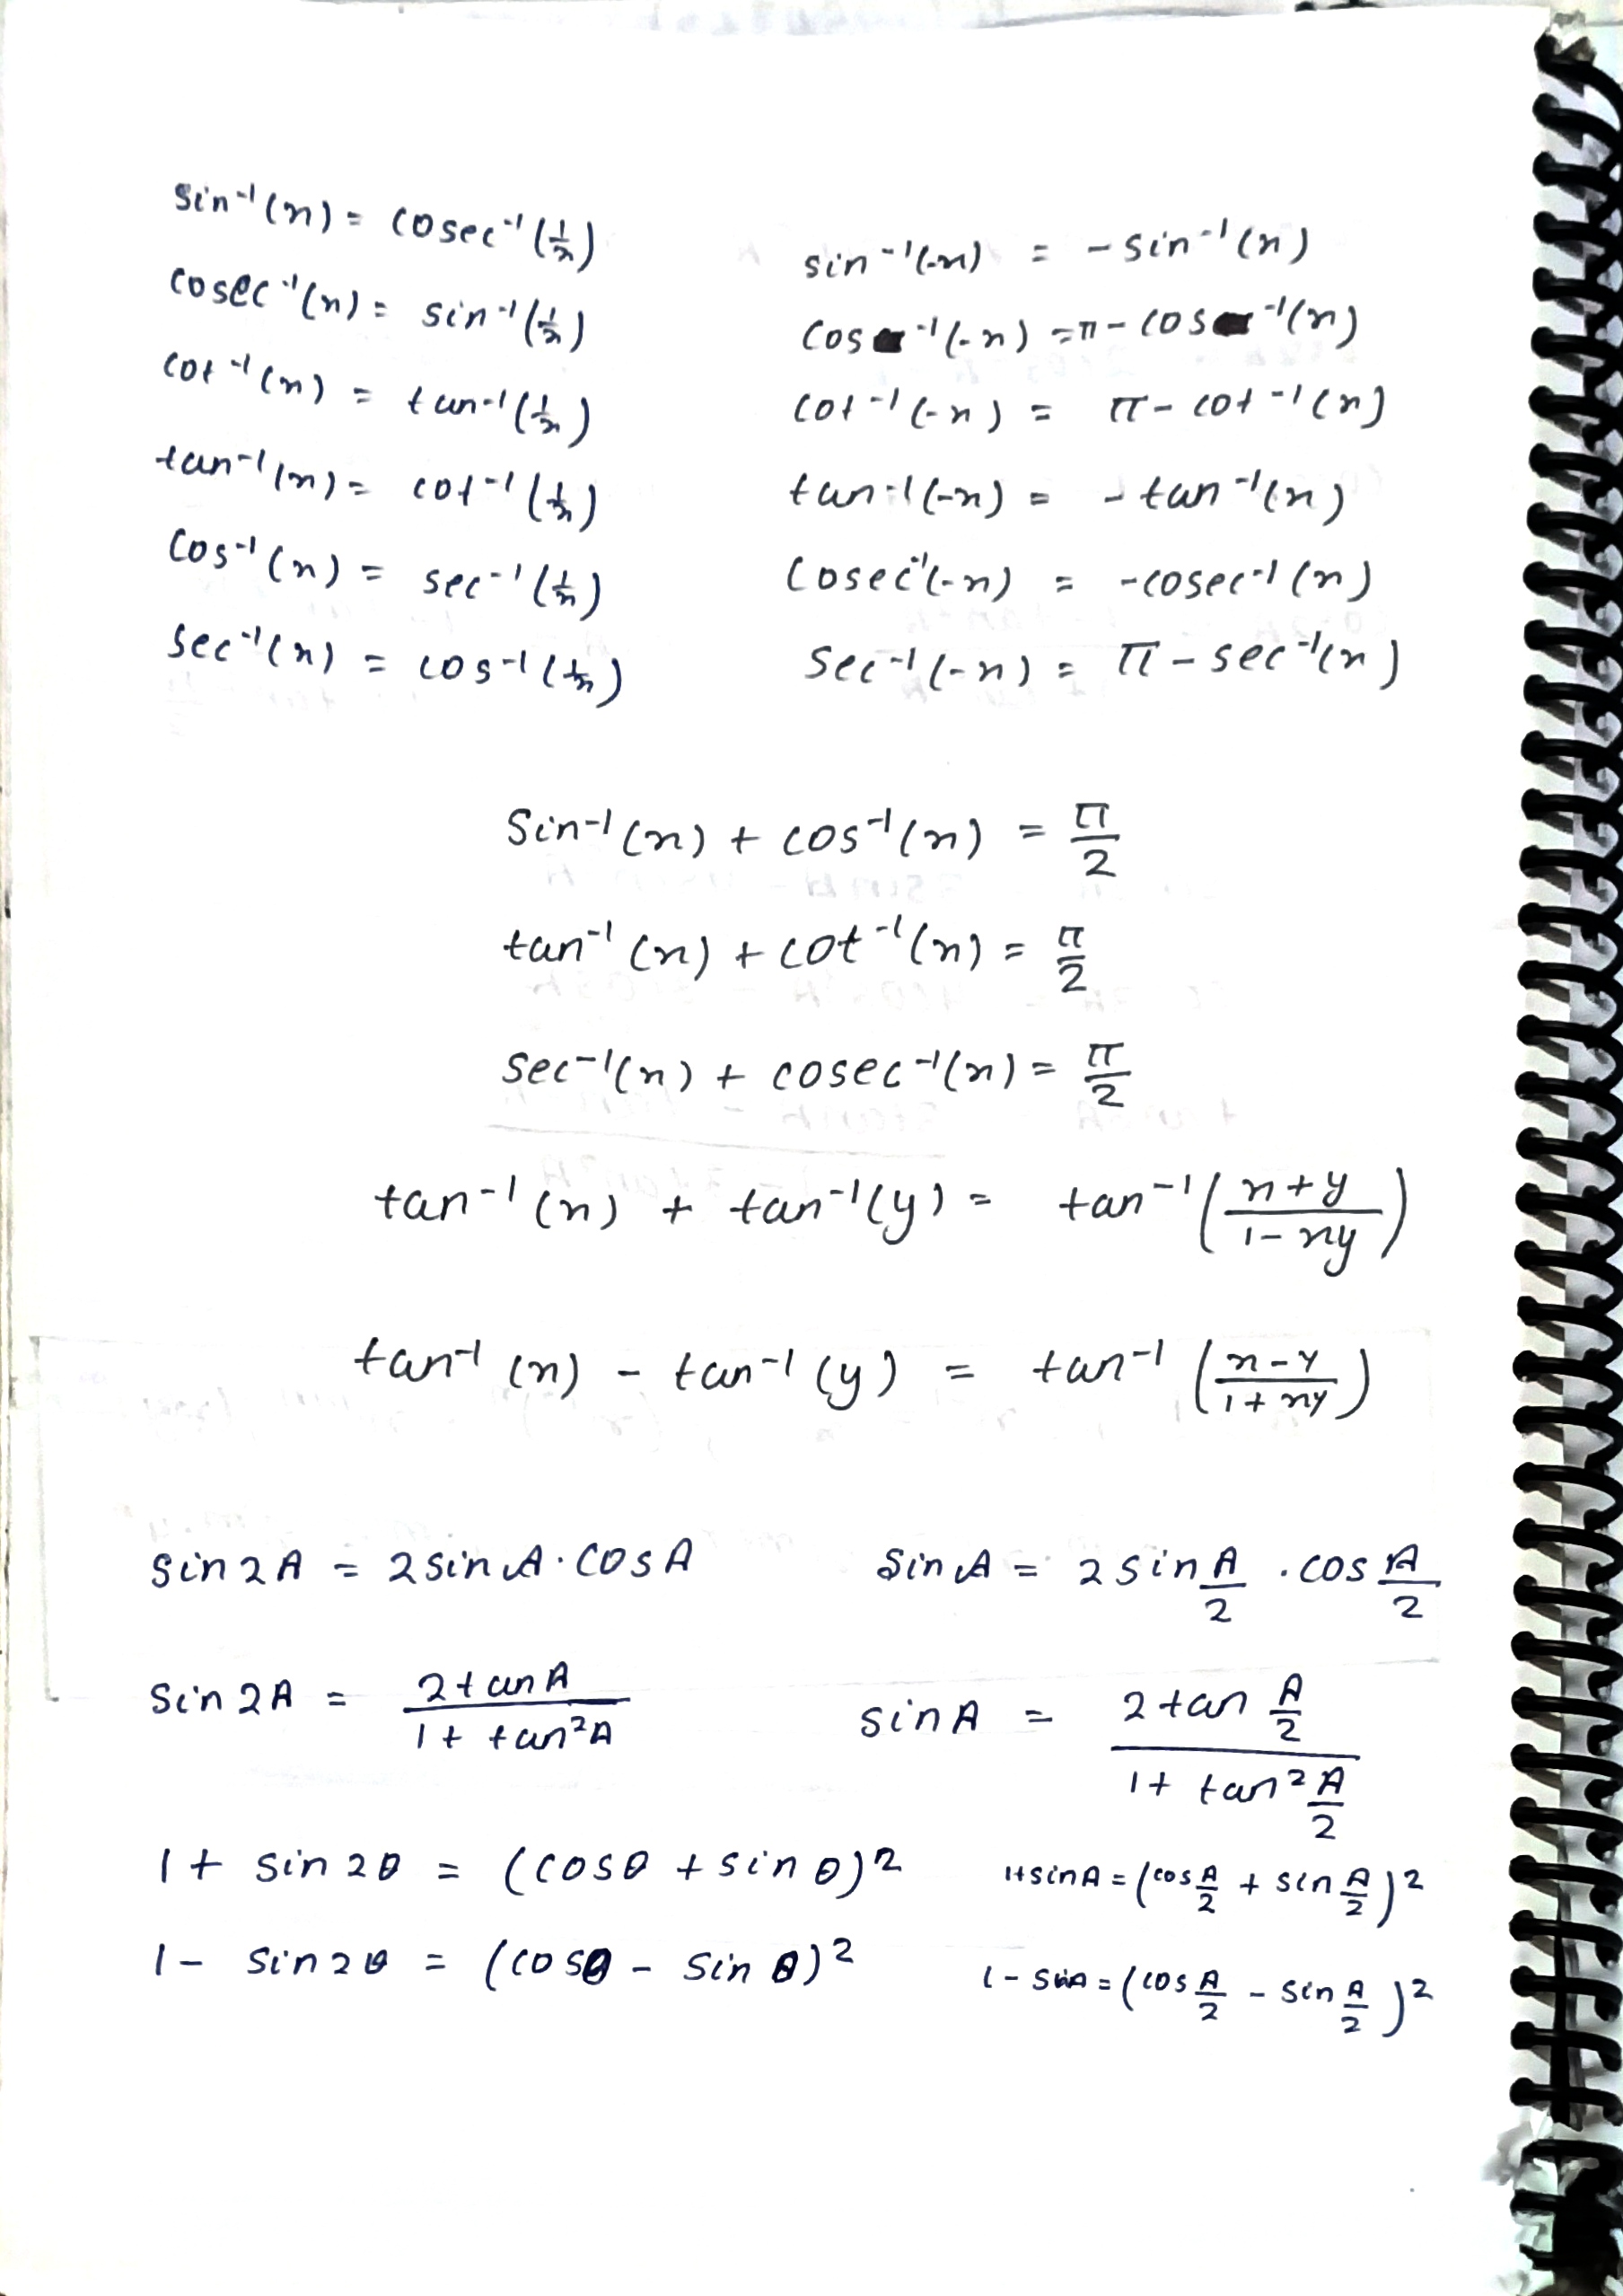 sin⁻¹(x) = cosec⁻¹(1/x)
cosec⁻¹(x) = sin⁻¹(1/x)
cot⁻¹(x) = tan⁻¹(1/x)
tan⁻¹(x) = cot⁻¹(1/x)
cos⁻¹(x) = sec⁻¹(1/x)
sec⁻¹(x) = cos⁻¹(1/x)
sin⁻¹(-x) = -sin⁻¹(x)
cos⁻¹(-x) = π - cos⁻¹(x)
cot⁻¹(-x) = π - cot⁻¹(x)
tan⁻¹(-x) = -tan⁻¹(x)
cosec⁻¹(-x) = -cosec⁻¹(x)
sec⁻¹(-x) = π - sec⁻¹(x)
Sin⁻¹(x) + cos⁻¹(x) = π/2
tan⁻¹(x) + cot⁻¹(x) = π/2
sec⁻¹(x) + cosec⁻¹(x) = π/2
tan⁻¹(x) + tan⁻¹(y) = tan⁻¹((x+y)/(1-xy))
tan⁻¹(x) - tan⁻¹(y) = tan⁻¹((x-y)/(1+xy))
sin2A = 2sinA·cosA
sinA = 2sin A/2 · cos A/2
sin2A = 2tanA/(1+tan²A)
sinA = 2tan A/2 / (1+tan² A/2)
1 + sin2θ = (cosθ + sinθ)²
1+sinA = (cos A/2 + sin A/2)²
1 - sin2θ = (cosθ - sinθ)²
1 - sinA = (cos A/2 - sin A/2)²